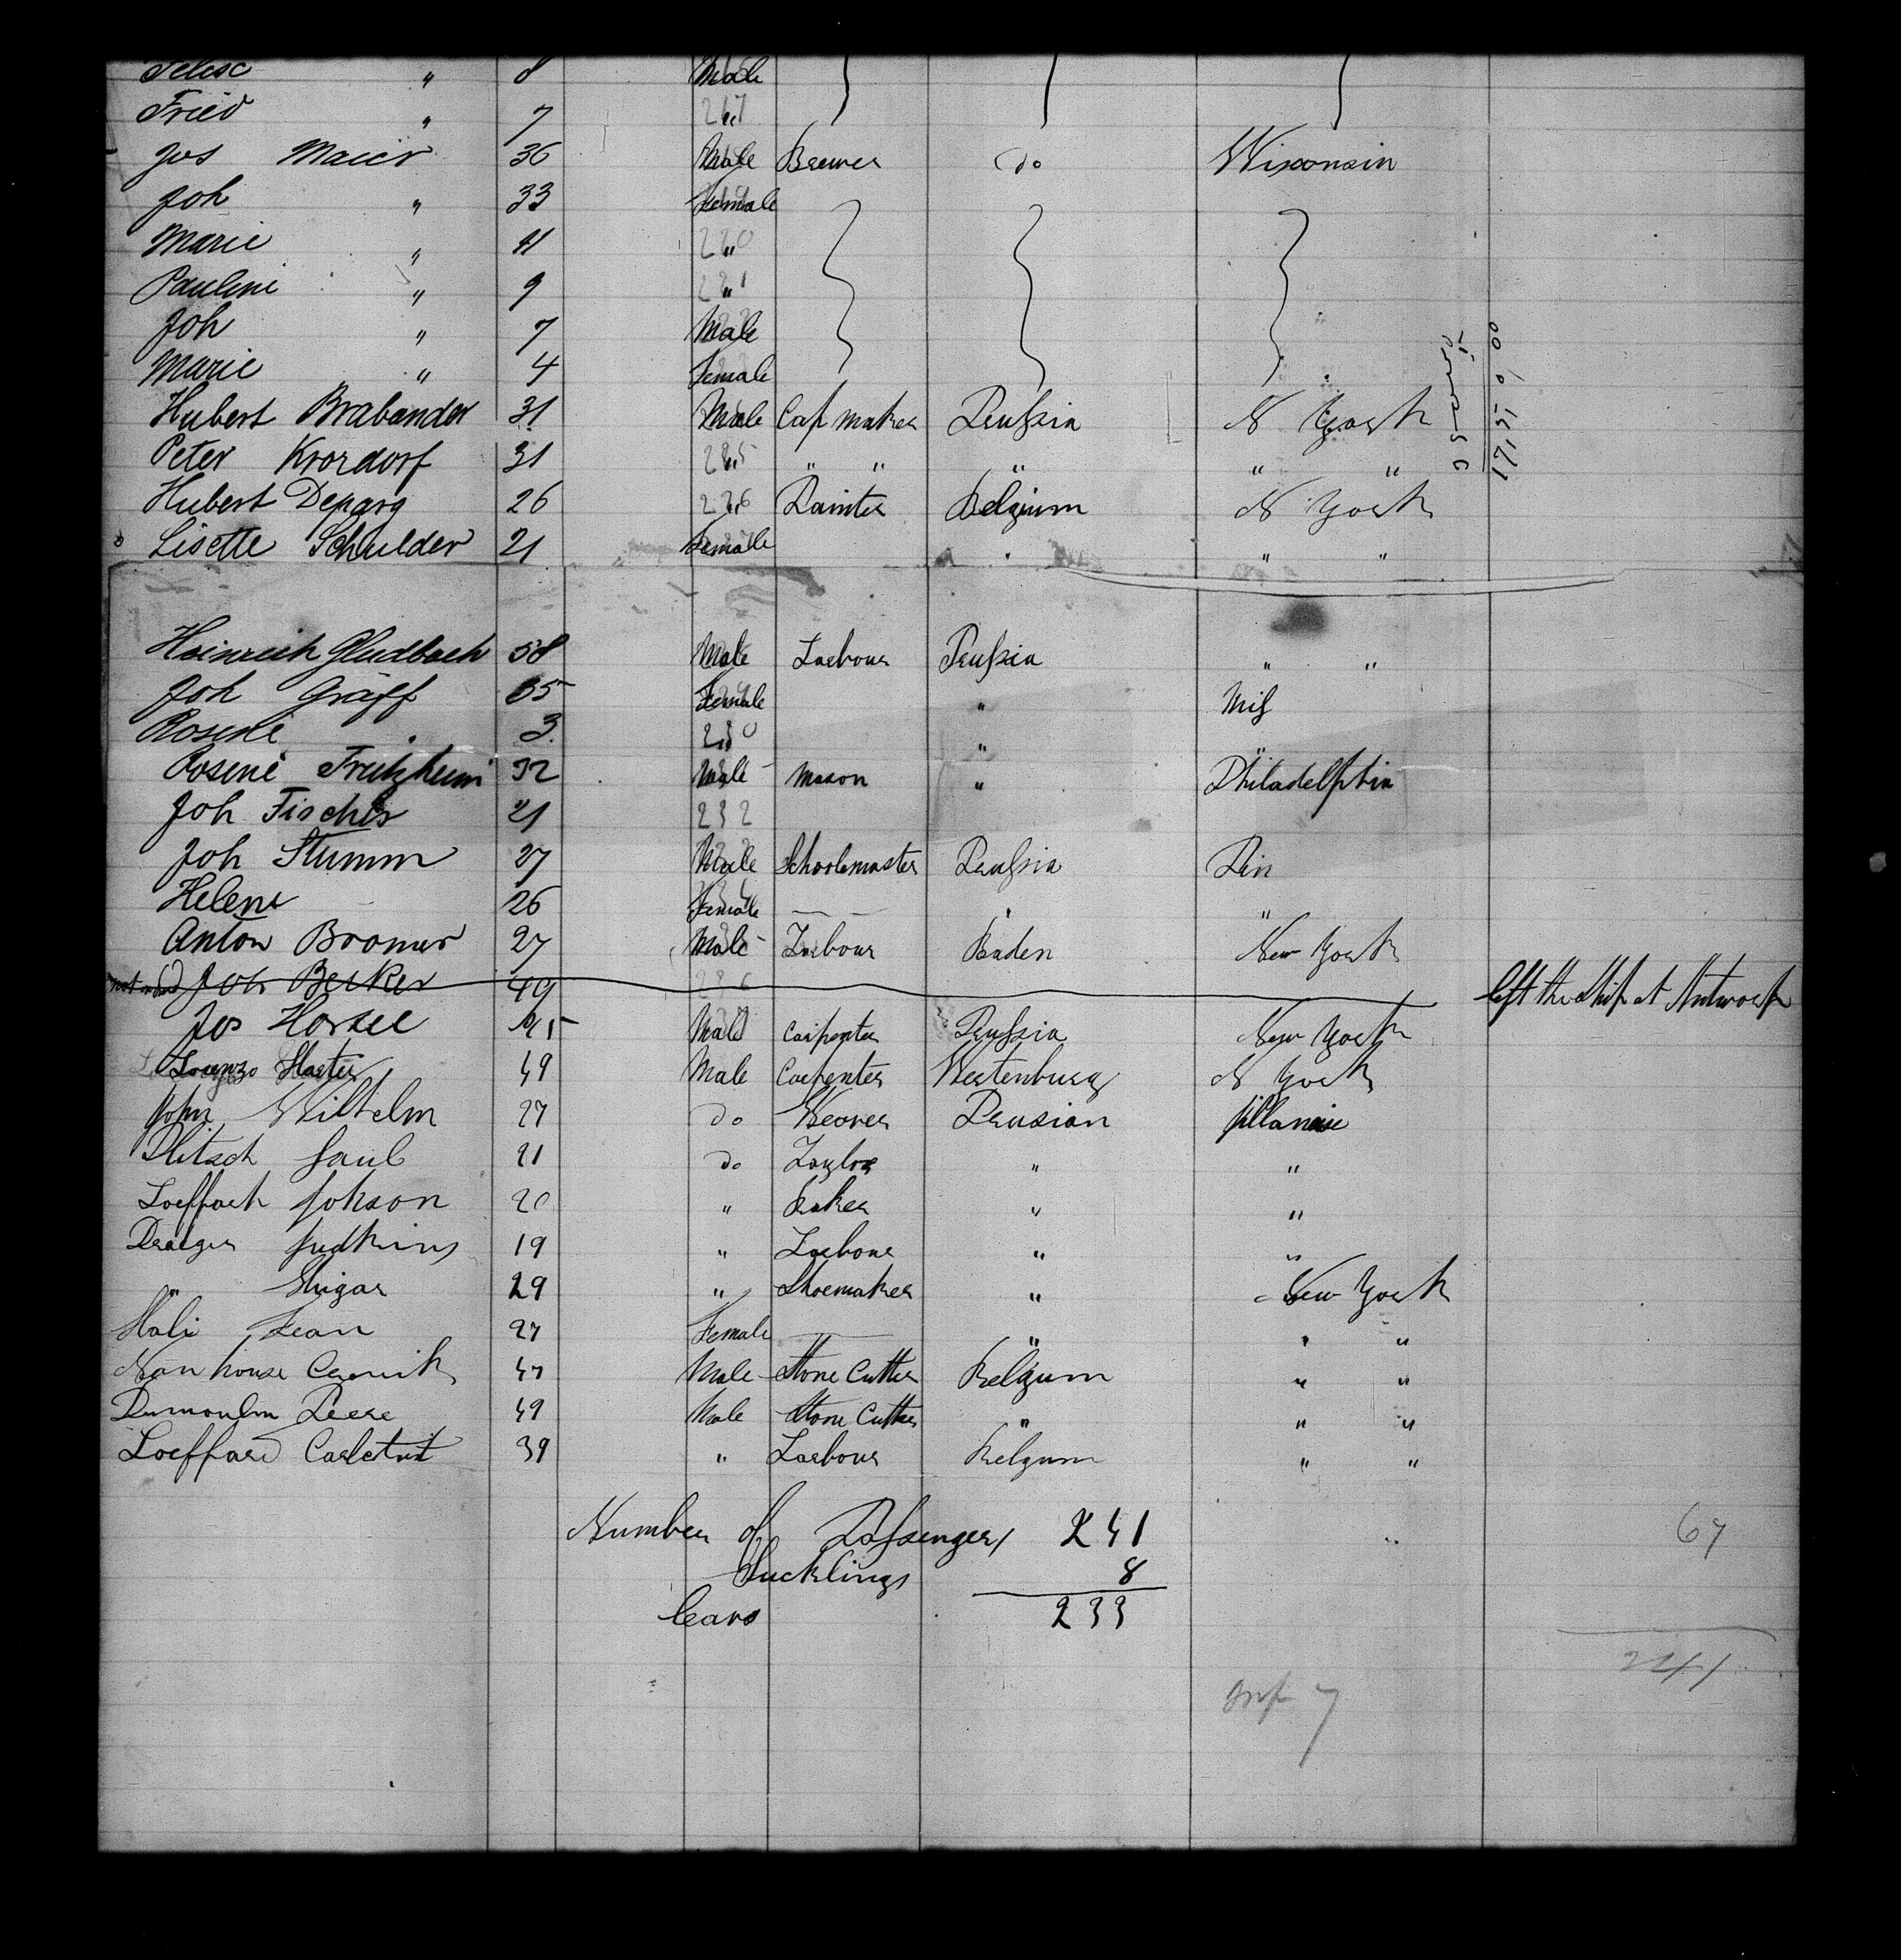 Felise " 8 Male
Fried " 7 217 "
Jos Maier 36 Male Brewer do Wisconsin
Joh " 33 Female
Marie " 11 220 "
Pauline " 9 221 "
Joh " 7 Male
Marie " 4 Female
Hubert Brabander 31 Male Cap maker Prussia N York
Peter Krordorf 31 225 " " " " " "
Hubert Deparg 26 226 " Painter Belgium N York
Lisette Schulder 21 Female " " "
Heinrich Gludbach 58 Male Labour Prussia " "
Joh Gräff 35 Female " Miss
Rosene " 3 230 " "
Rosene 32 Male Mason " Philadelphia
Joh Fischer 21 232
Joh Stumm 27 Male Schoolmaster Prussia Pin
Helene 26 Female " "
Anton Bromer 27 Male Labour Baden New York
not on board Joh Becker 49 236 left the Ship at Antwerp
Jos Horsel 45 Male Carpenter Prussia New York
Lorenzo Harter 49 Male Carpenter Wertenburg N York
John Wilhelm 27 do Weaver Prusian Illanoise
Plitsch Paul 21 do Taylor " "
Loeffach Johson 20 " Baker " "
Draeger Judkins 19 " Labour " "
" Shigar 29 " Shoemaker " New York
Hali Jean 27 Female " " "
Van house 47 Male Stone Cutter Belgum " "
Dumoulin Peere 49 Male Stone Cutter " " "
Loeffard 39 " Labour Belgum " "
Number of Passengers 241
Sucklings 8
leavs 233
67
241
Inf 7
1715 9 00